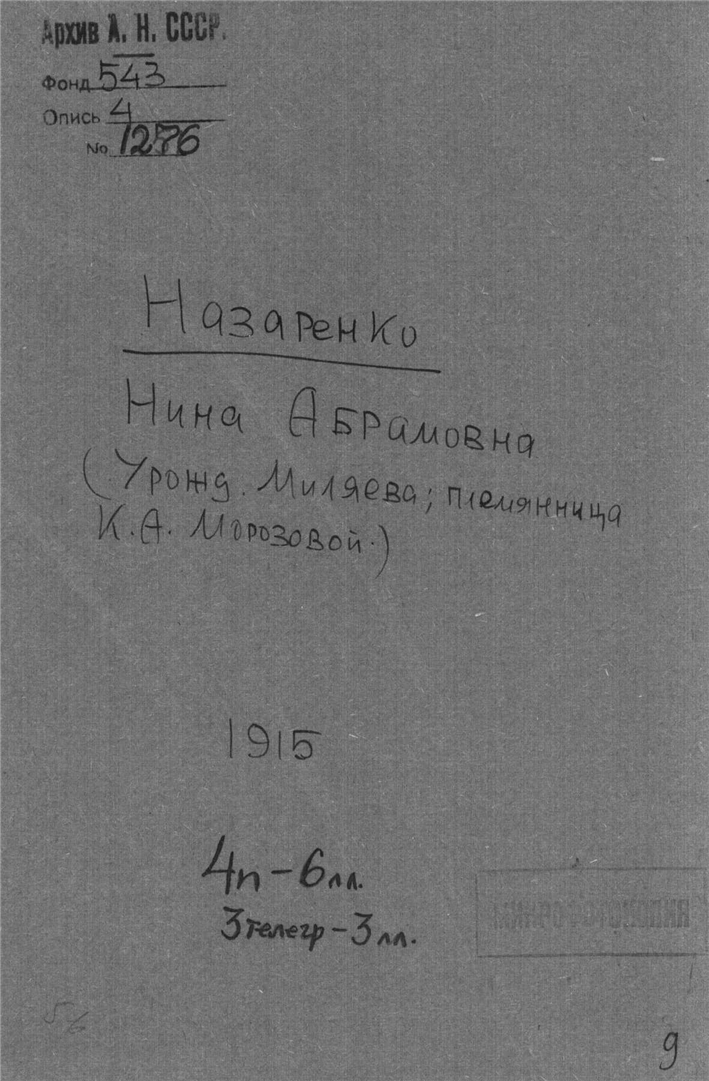 Архив А. Н. СССР.
Фонд 543
Опись 4
No 1276
Назаренко
Нина Абрамовна
(Урожд. Миляева; племянница
К.А. Морозовой.)
1915
4п - 6лл.
3 телегр - 3 лл.
9